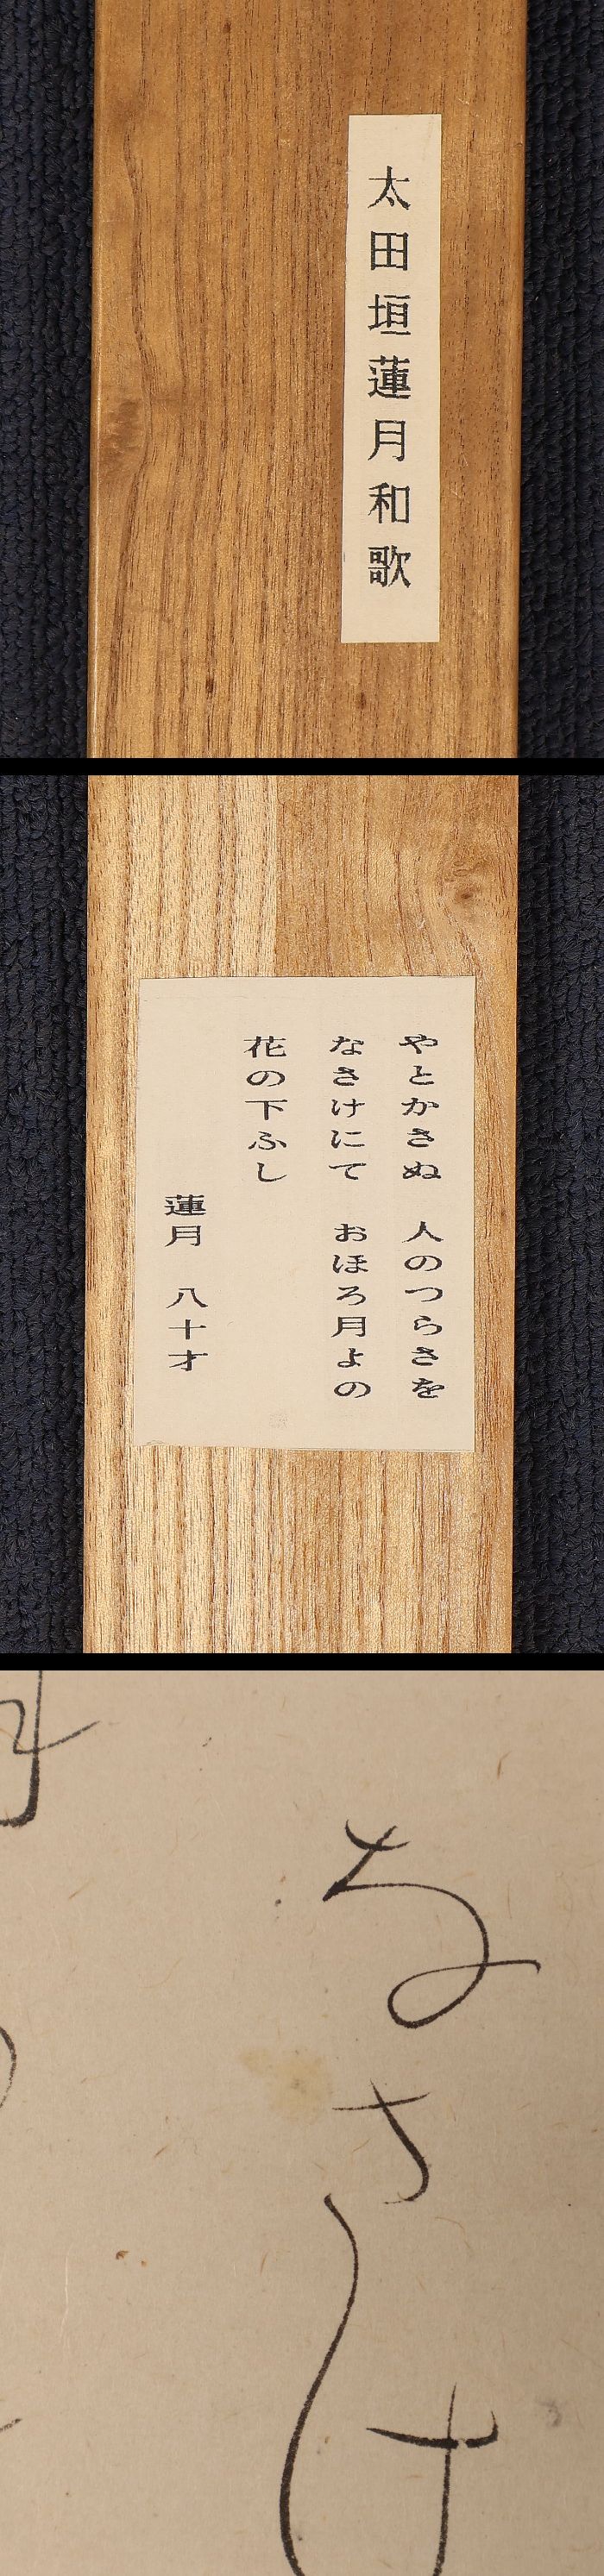 太田垣蓮月和歌
やとかさぬ 人のつらさを
なさけにて おほろ月よの
花の下ふし
蓮月 八十才
なさけ